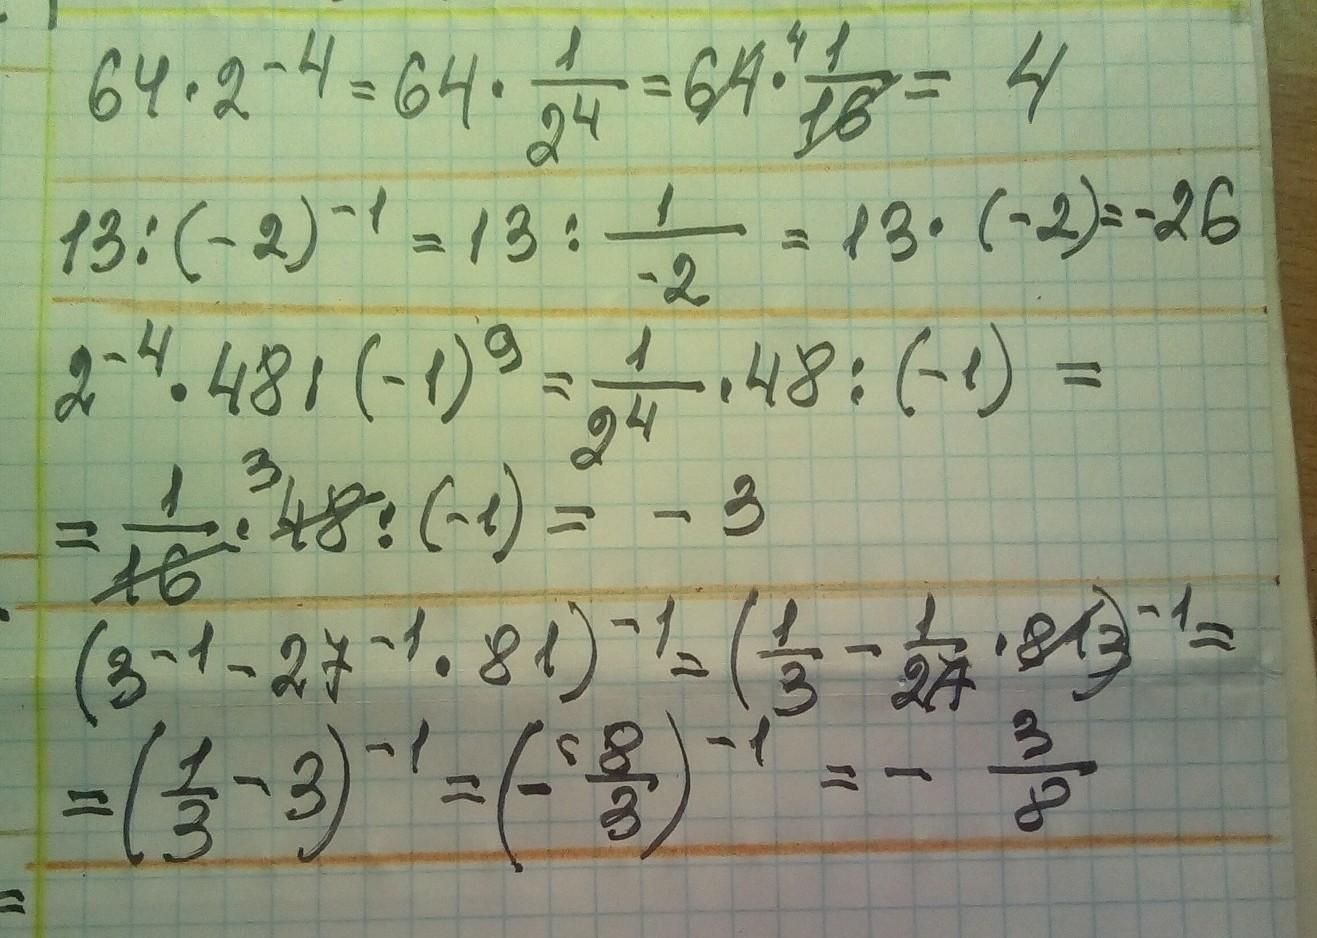 64 · 2⁻⁴ = 64 · 1/2⁴ = 64 · ⁴ 1/16 = 4
13 : (-2)⁻¹ = 13 : 1/-2 = 13 · (-2) = -26
2⁻⁴ · 48 : (-1)⁹ = 1/2⁴ · 48 : (-1) =
= 1/16 · ³ 48 : (-1) = - 3
(3⁻¹ - 27⁻¹ · 81)⁻¹ = (1/3 - 1/27 · 81 3)⁻¹ =
= (1/3 - 3)⁻¹ = (- 8/3)⁻¹ = - 3/8
=